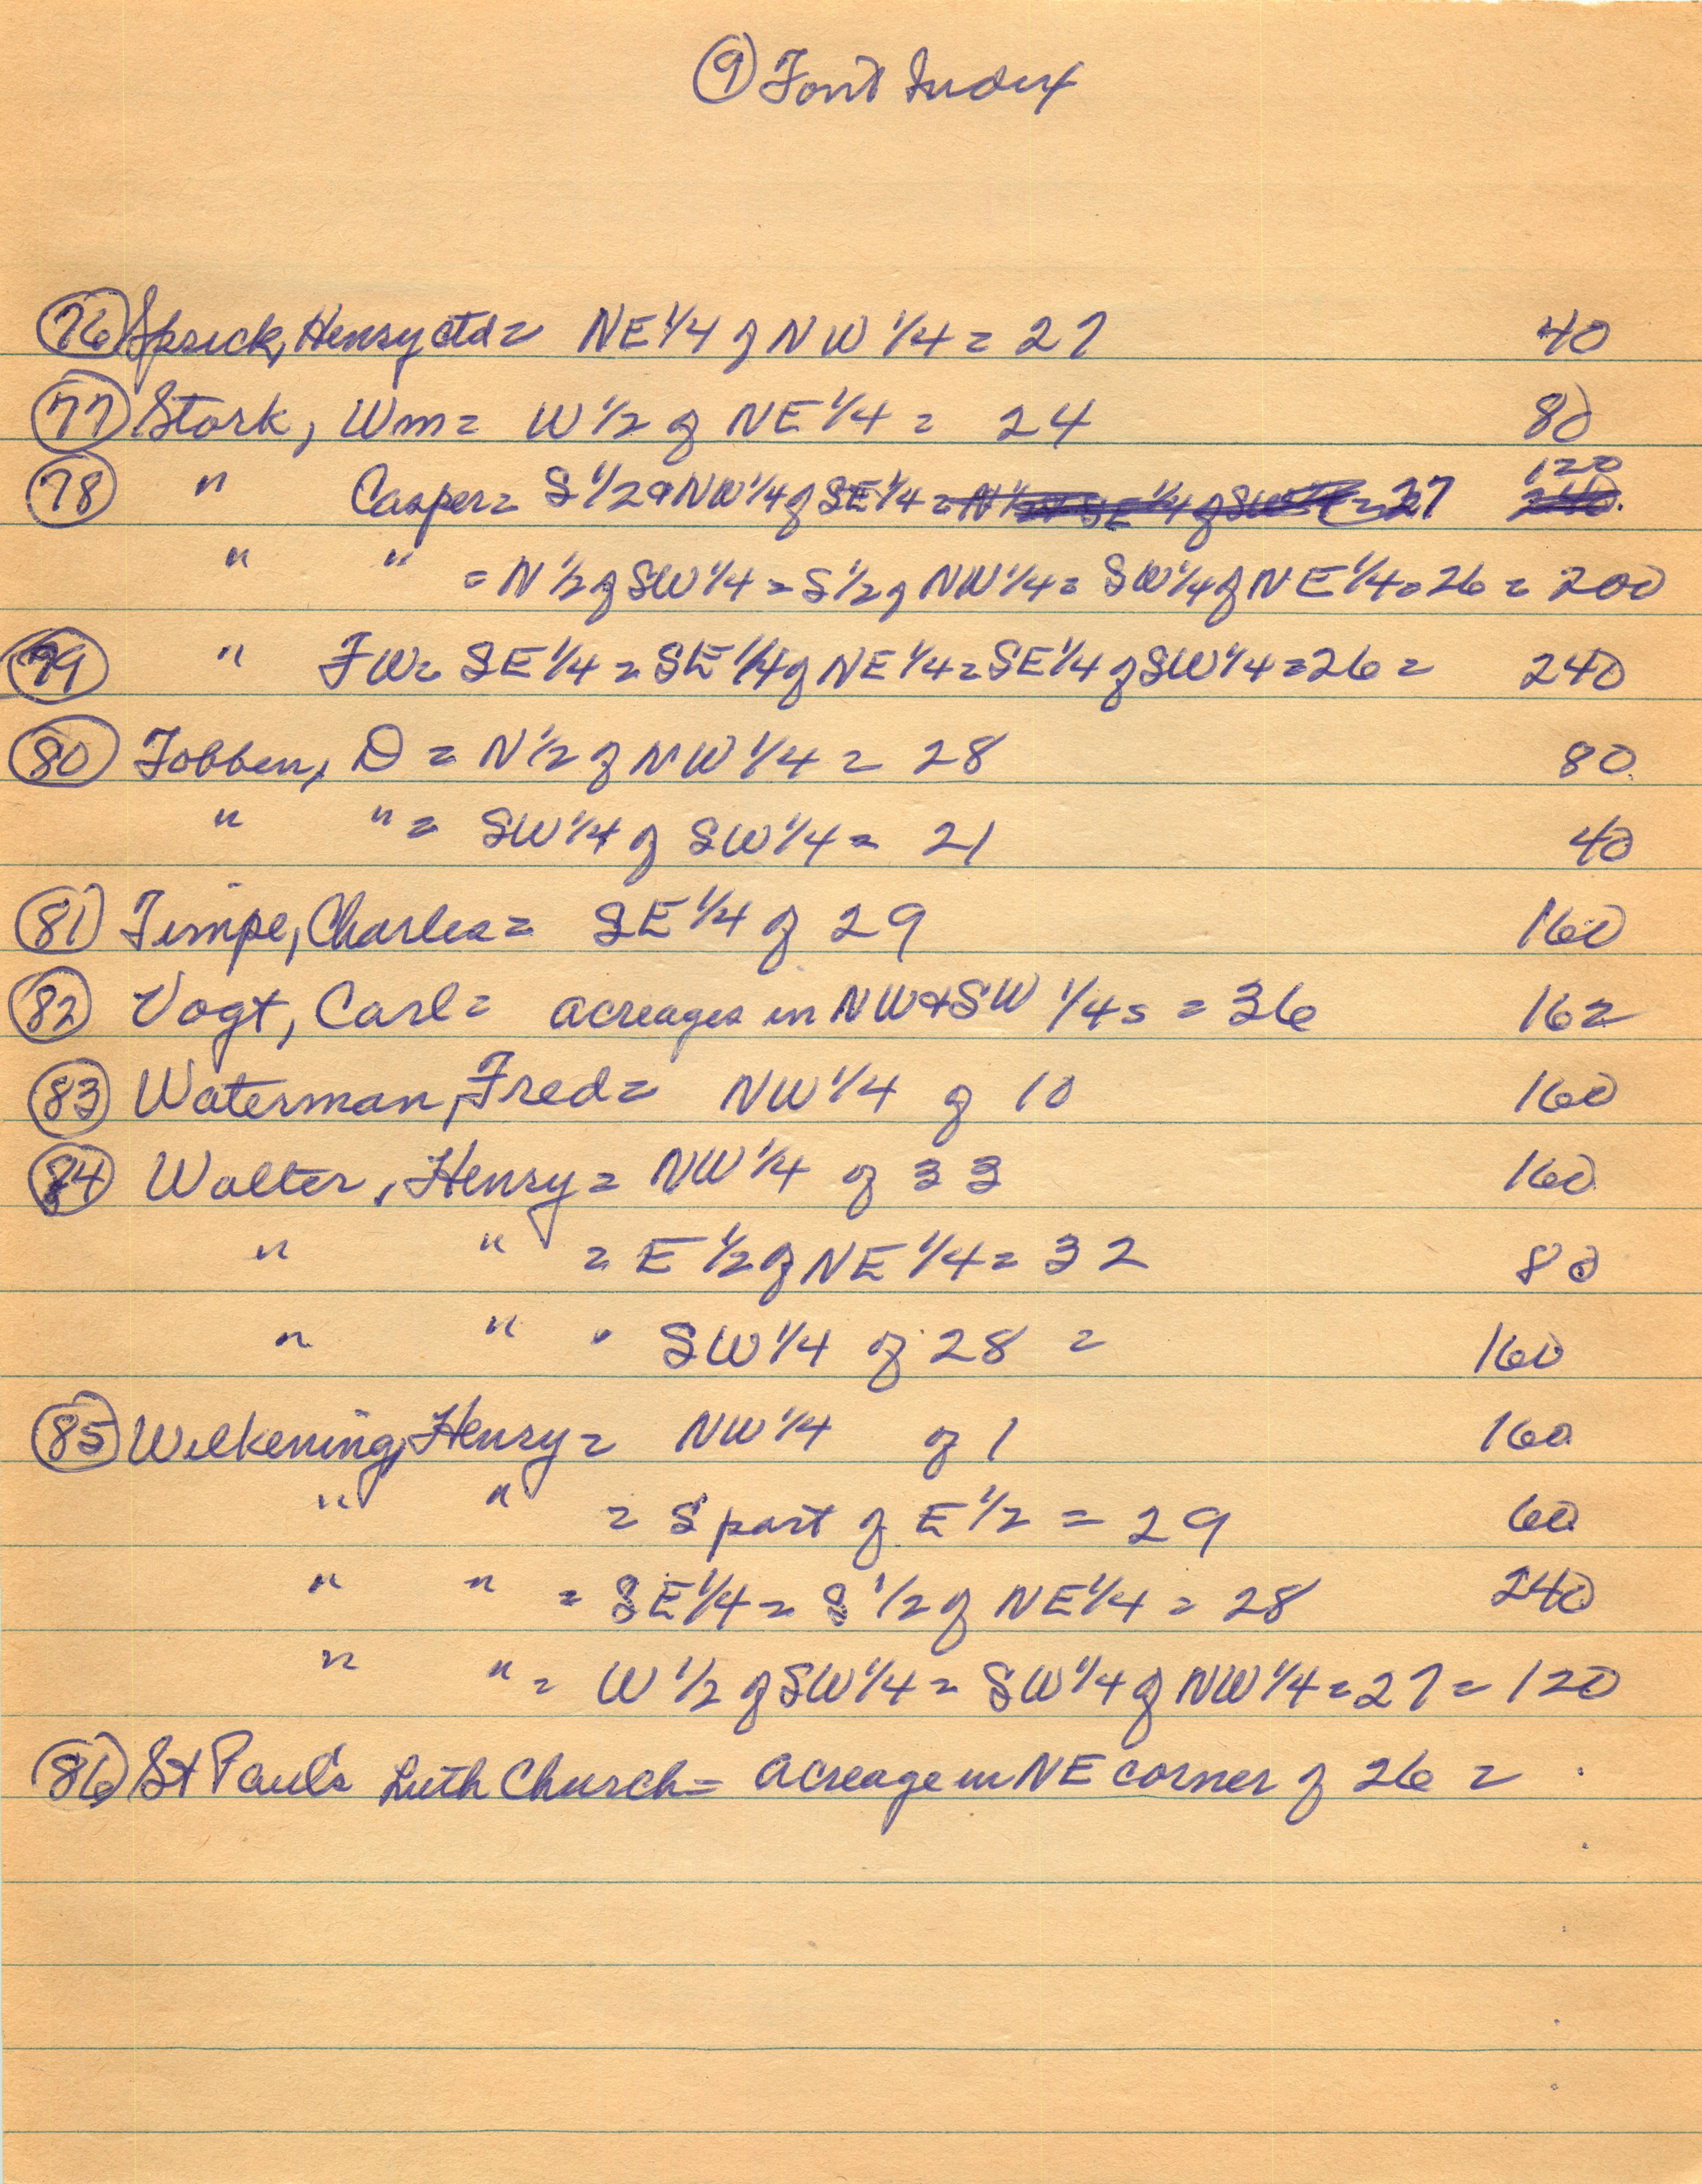 ⑨ Font Index
76 Sprick, Henry ctd = NE 1/4 of NW 1/4 = 27 40
77 Stork, Wm = W 1/2 of NE 1/4 = 24 80
78 " Casper = S 1/2 & NW 1/4 of SE 1/4 = 27 120
" " = N 1/2 of SW 1/4 = S 1/2 of NW 1/4 = SW 1/4 of NE 1/4 = 26 = 200
79 " FW = SE 1/4 = SE 1/4 of NE 1/4 = SE 1/4 of SW 1/4 = 26 = 240
80 Tobben, D = N 1/2 of NW 1/4 = 28 80
" " = SW 1/4 of SW 1/4 = 21 40
81 Timpe, Charles = SE 1/4 of 29 160
82 Vogt, Carl = acreages in NW & SW 1/4s = 36 162
83 Waterman, Fred = NW 1/4 of 10 160
84 Walter, Henry = NW 1/4 of 33 160
" " = E 1/2 of NE 1/4 = 32 80
" " SW 1/4 of 28 = 160
85 Wilkening, Henry = NW 1/4 of 1 160
" " = S part of E 1/2 = 29 60
" " = SE 1/4 = S 1/2 of NE 1/4 = 28 240
" " = W 1/2 of SW 1/4 = SW 1/4 of NW 1/4 = 27 = 120
86 St Paul's Luth Church = acreage in NE corner of 26 =